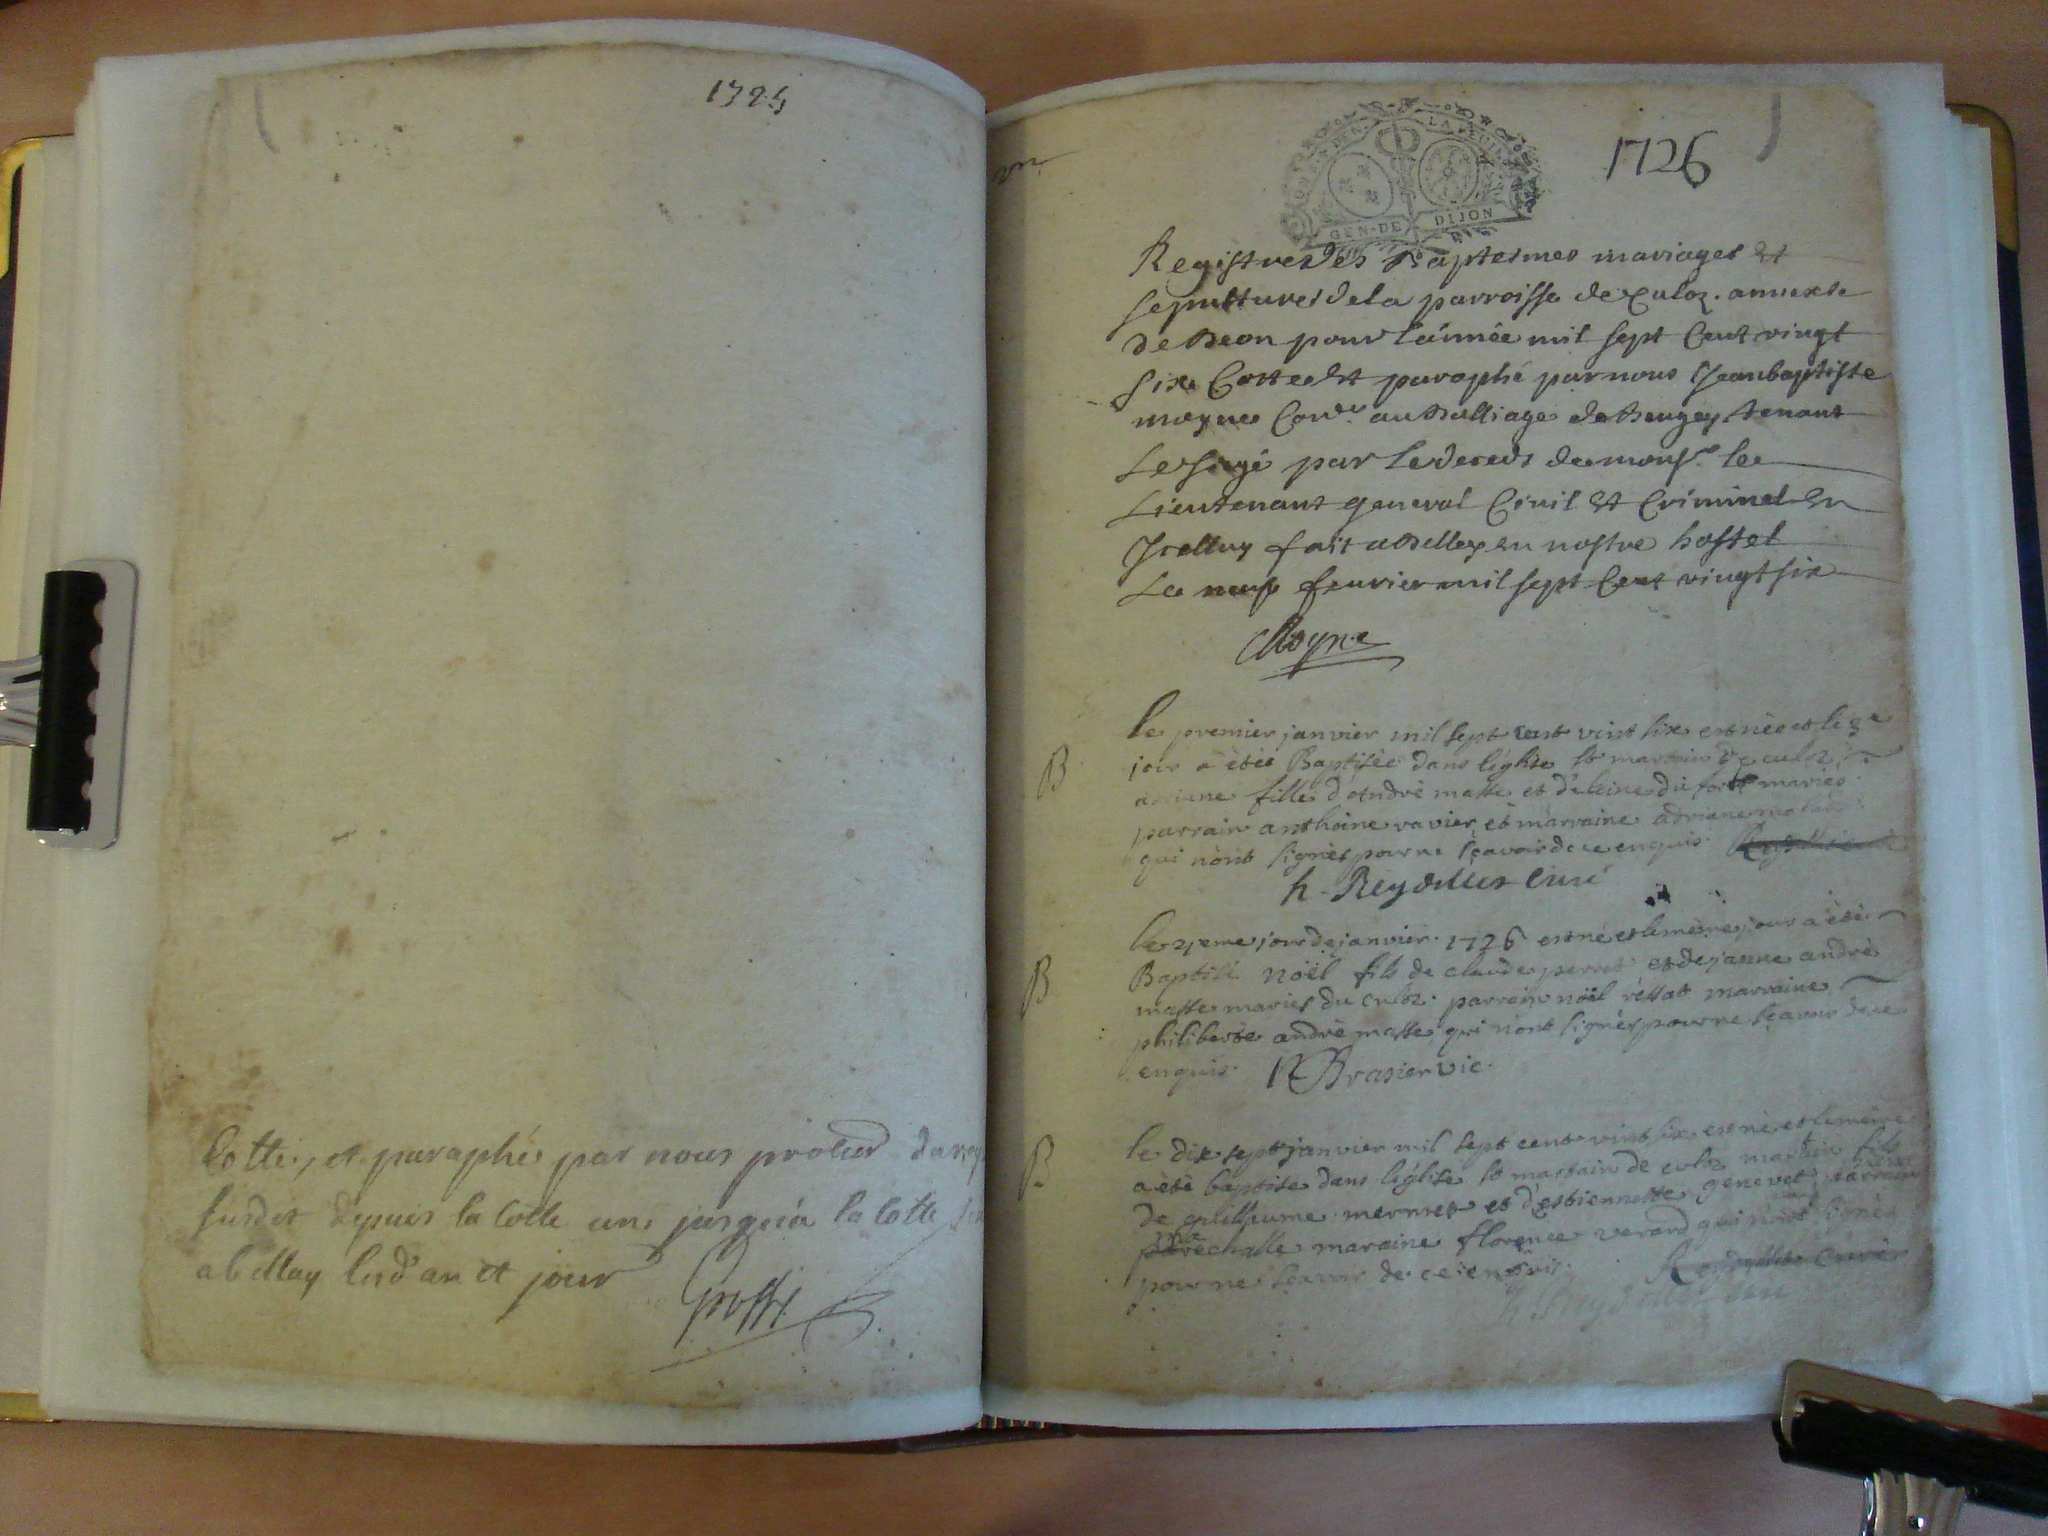 1725
Cotté, et paraphé par nous
susdit depuis la Cotte une jusqu'a la Cotte
a bellay lesd an et jour
Grossi
1726
GEN·DE DIJON
Registre des Baptesmes mariages et
sepultures de la parroisse de Culoz annexe
de Beon pour l'année mil sept Cent vingt
six Cotté et paraphé par nous Jean baptiste
moyne Coner. au Balliage de Beugey tenant
Le siegé par le deceds de monsr. le
Lieutenant general Civil et Criminel en
Icelluy fait a Belley en nostre hostel
Le neuf feuvrier mil sept Cent vingt six
Moyne
B
le premier janvier mil sept cent vint six est née et le
jour a étée Baptisée dans léglise st martin de culoz
adriane fille d'andré masse et d'
parrain anthoine ravier et marraine adriane
qui n'ont signés pour ne sçavoir de ce enquis
h. Reydellet Curé
B
le 21eme jour de janvier 1726 est né et le méme jour a été
Baptisé noël fils de claude perret et de jeanne andré
masse mariés du culoz. parrain noël réssat marraine
philiberte andré masse qui n'ont signés pour ne sçavoir de ce
enquis. Brasier vic.
B
le dix sept janvier mil sept cent vint six est né et le méme
a été baptise dans léglise st martin de culoz martin fils
de guillaume mermet et d'estiennette genevet parrain
maraine florence verard qui n'ont signés
pour ne scavoir de ce enquis. Reydellet curé
h. Reydellet